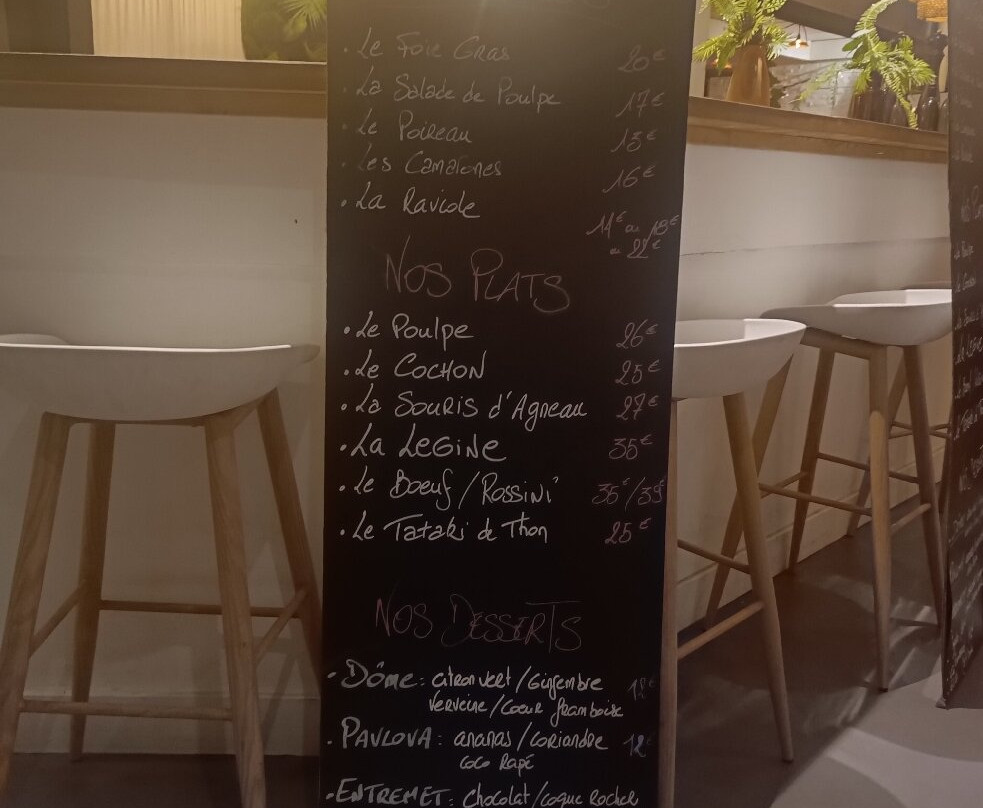 . Le Foie Gras 20€
. La Salade de Poulpe 17€
. Le Poireau 13€
. Les Camarones 16€
. La Raviole 14€ ou 18€
ou 22€
NOS PLATS
. Le Poulpe 26€
. Le COCHON 25€
. La SOURIS d'Agneau 27€
. La LEGINE 35€
. Le Boeuf / ROSSINI 35€/39€
. Le Tataki de Thon 25€
NOS DESSERTS
. DÔme : citron vert / Gingembre
Verveine / Coeur framboise
. PAVLOVA : ananas / coriandre 12€
coco Rapé
. ENTREMET : Chocolat / coque Rocher